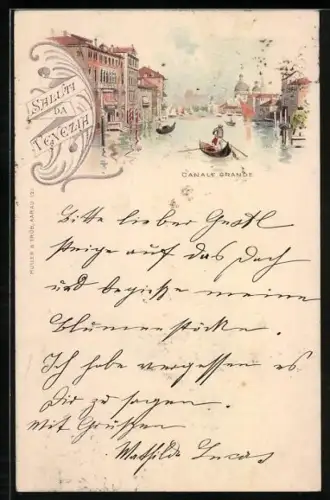 SALUTI
DA
VENEZIA
CANALE GRANDE
MÜLLER & TRÜB, AARAU 131
Bitte lieber Gustl
steige auf das Dach
und begieße meine
Blumenstöcke.
Ich habe vergessen es
Dir zu sagen.
Mit Grüßen
Mathilde Lucas